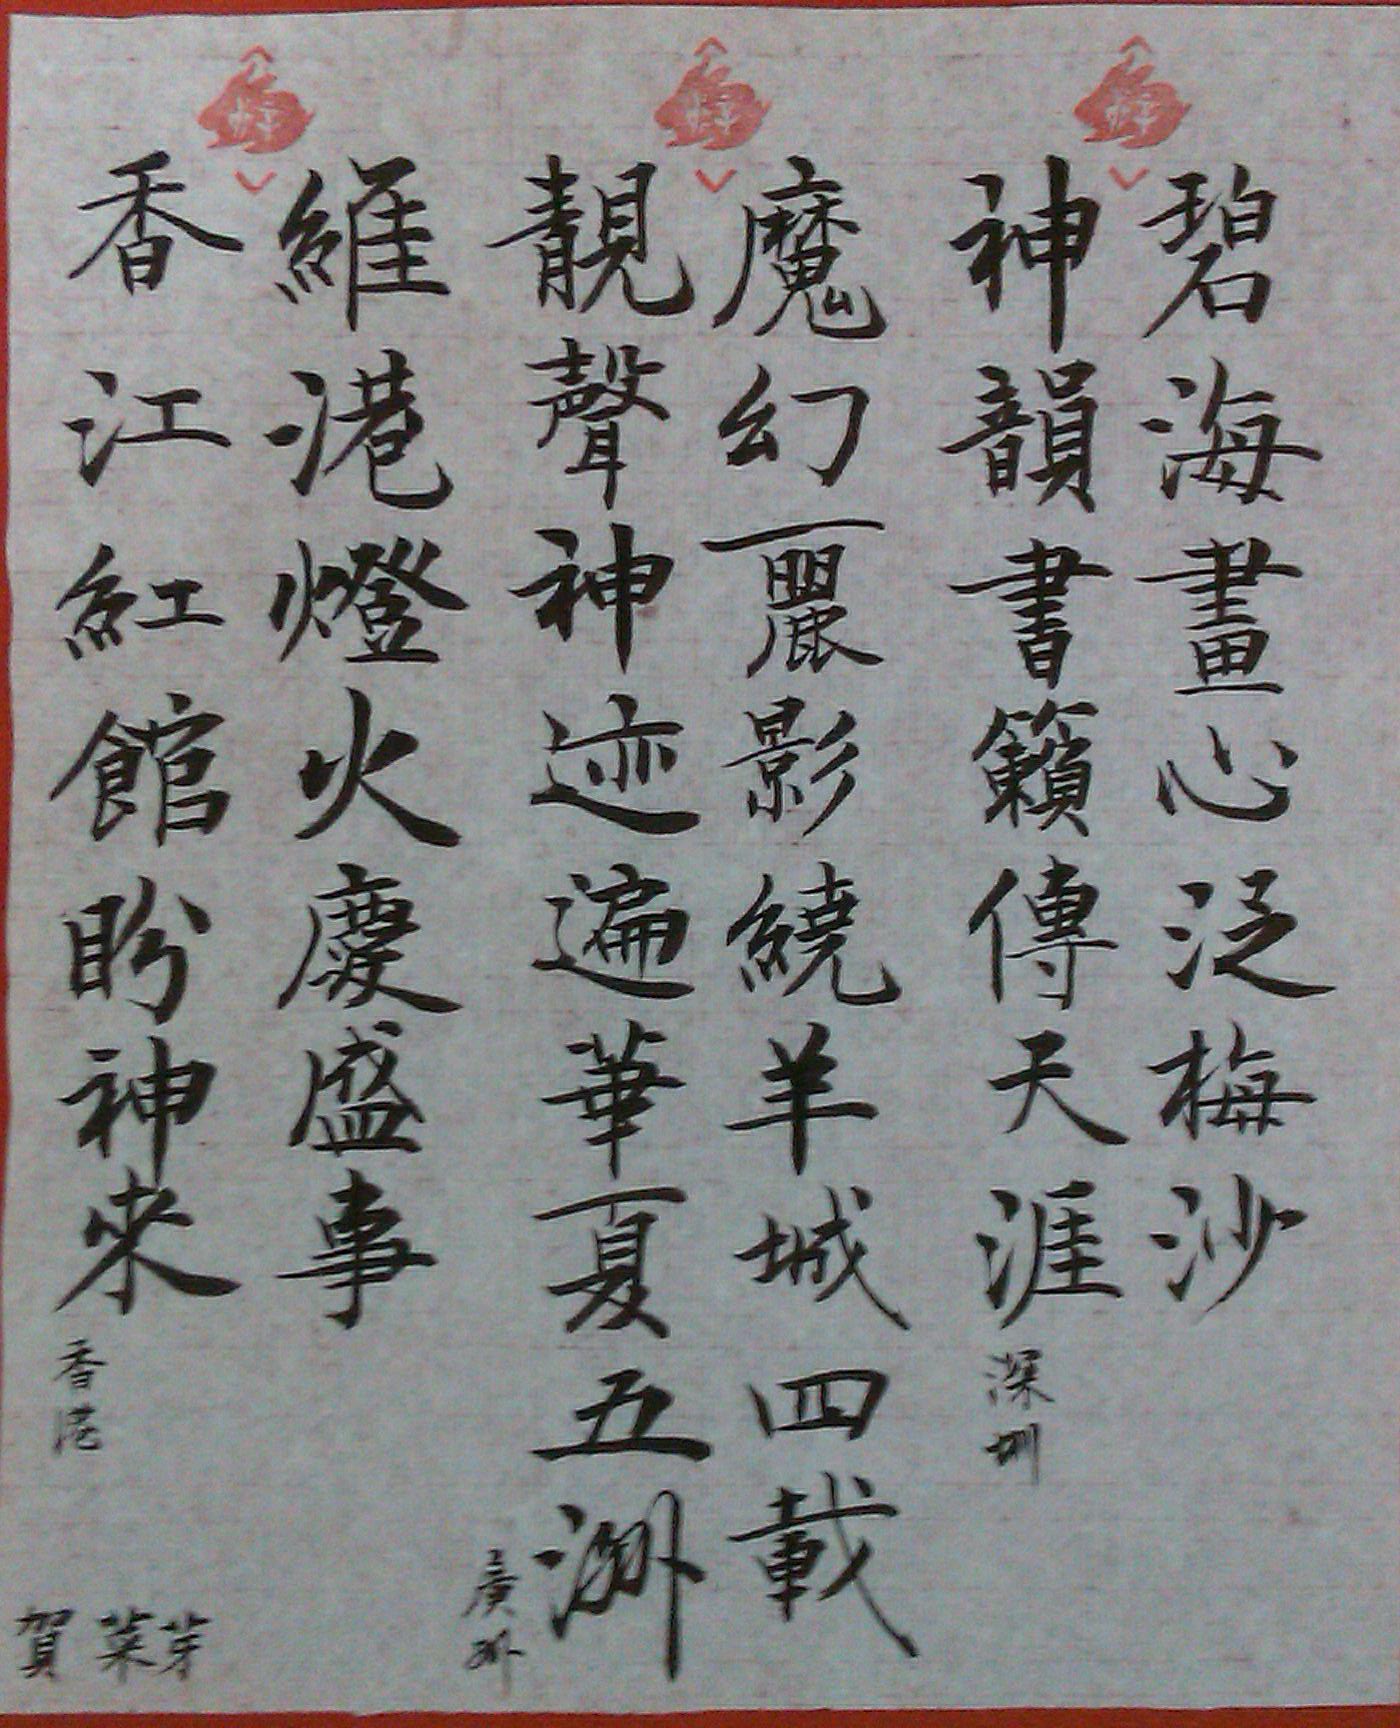 碧海畫心泛梅沙
神韻書籟傳天涯
深圳
魔幻麗影繞羊城四載
靚聲神迹遍華夏五洲
廣州
維港燈火慶盛事
香江紅館盼神來
香港
賀 菜芽